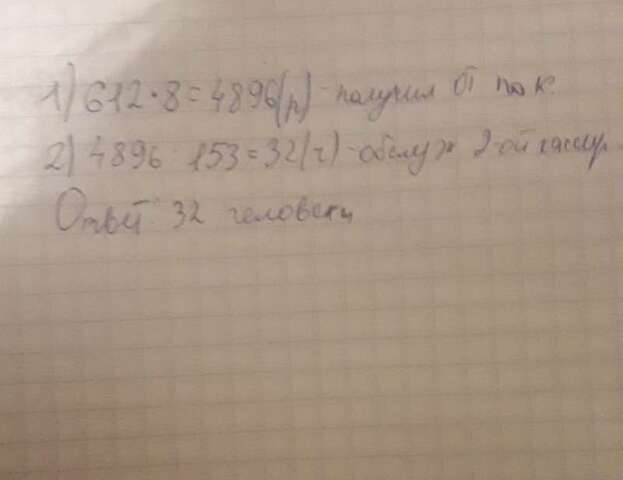 1) 612·8=4896(р)-получил от пок.
2) 4896:153=32(ч)-обслуж 2-ой кассир.
Ответ: 32 человека